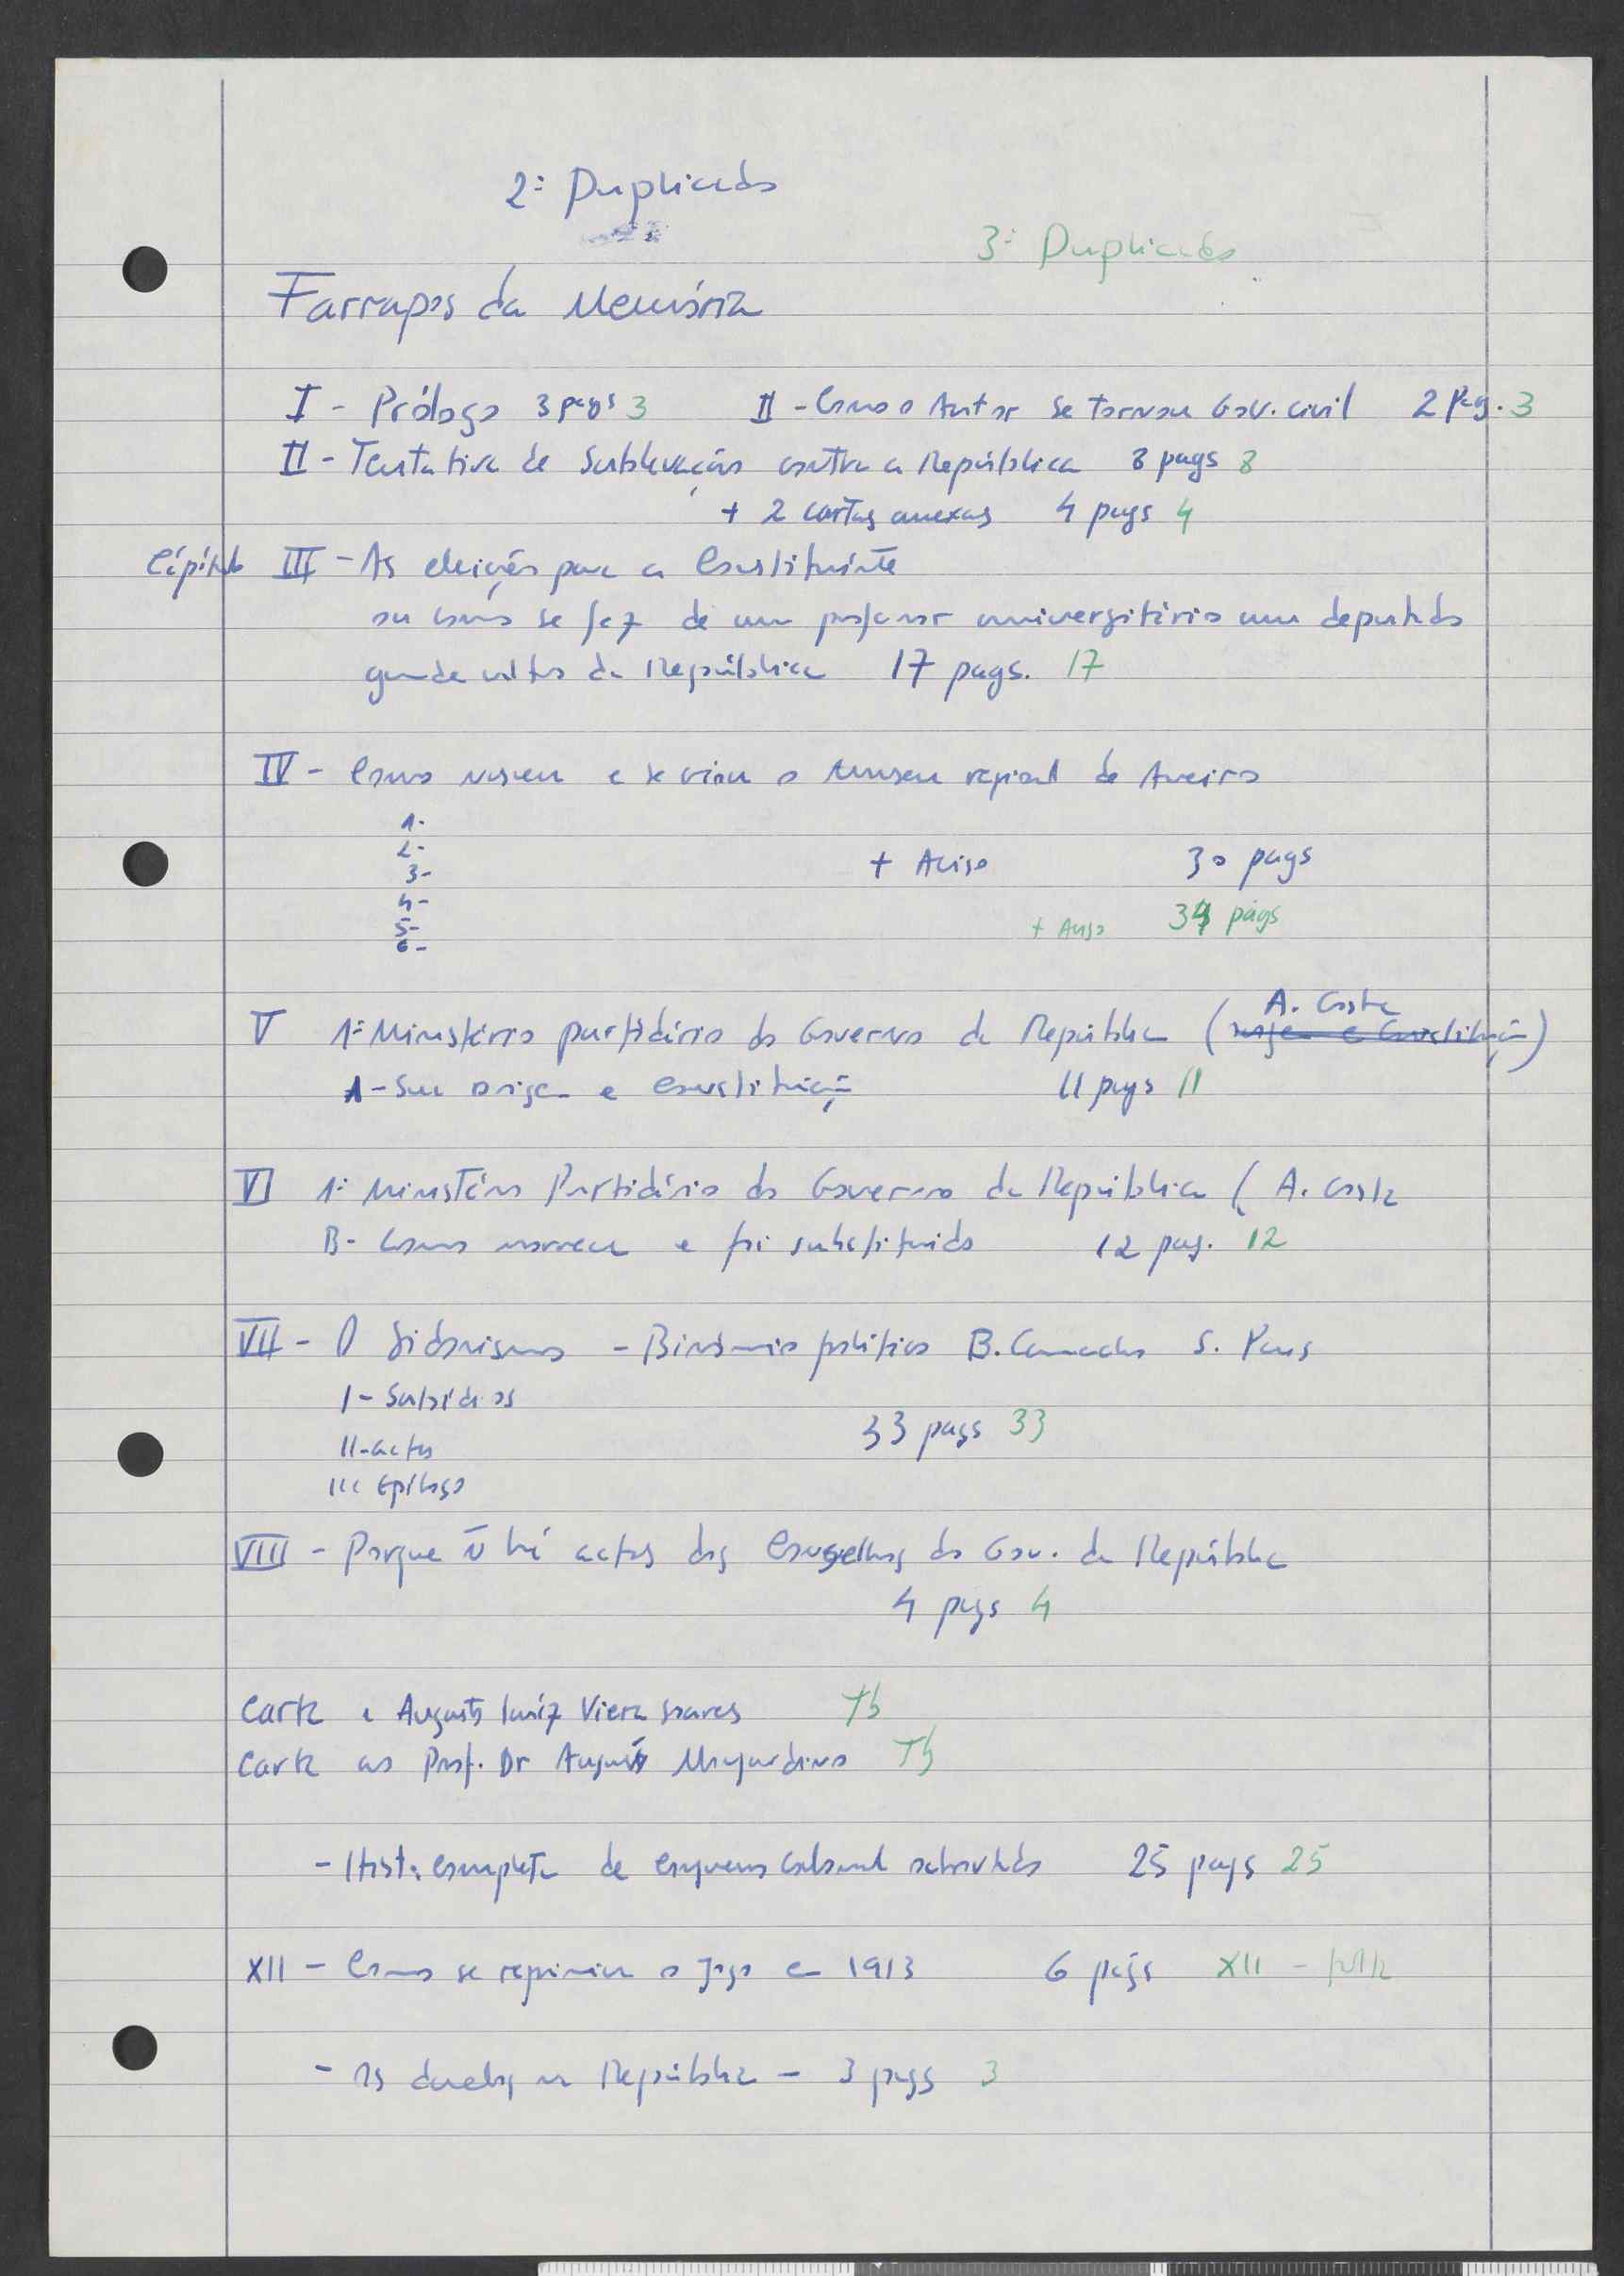 2º Duplicado
3º Duplicado
Farrapos da Memória
I - Prólogo 3 pags 3 II - Como o Autor se tornou Gov. civil 2 Pag. 3
II - Tentativa de Sublevação contra a República 8 pags 8
+ 2 cartas anexas 4 pags 4
Cápítulo III - As eleições para a Constituínte
ou como se fez de um professor universitário um deputado
grande vulto da República 17 pags. 17
IV - Como nasceu e se criou o Museu regional de Aveiro
1-
2-
3- + Aviso 30 pags
4-
5- + Aviso 34 págs
6-
V 1º Ministério partidário do Governo da República (A. Costa origem e Constituição)
A - Sua origem e Constituição 11 pags 11
VI 1º Ministério Partidário do Governo da República (A. Costa
B- Como morreu e foi substituido 12 pag. 12
VII - O Sidonismo - Binómio político B. Camacho S. Pais
I - Subsídios
33 pags 33
II - actos
III Epílogo
VIII - Porque ñ há actas dos Conselhos do Gov. da República
4 pags 4
Carta a Augusto Luíz Vieira Soares
Carta ao Prof. Dr Augusto
- Hist. completa de 25 pags 25
XII - Como se reprimiu o Jogo em 1913 6 págs XII - falta
- Os duelos na República - 3 pags 3